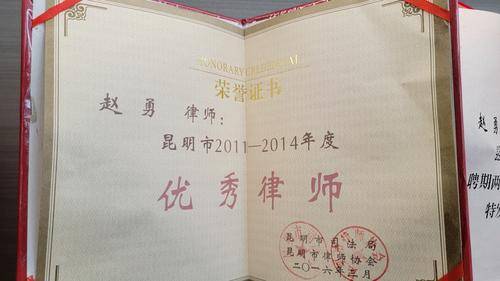 HONORARY CREDENTIAL
荣誉证书
赵勇 律师:
昆明市2011—2014年度
优秀律师
昆明市司法局
昆明市律师协会
二〇一六年三月
赵勇
聘期两
特发